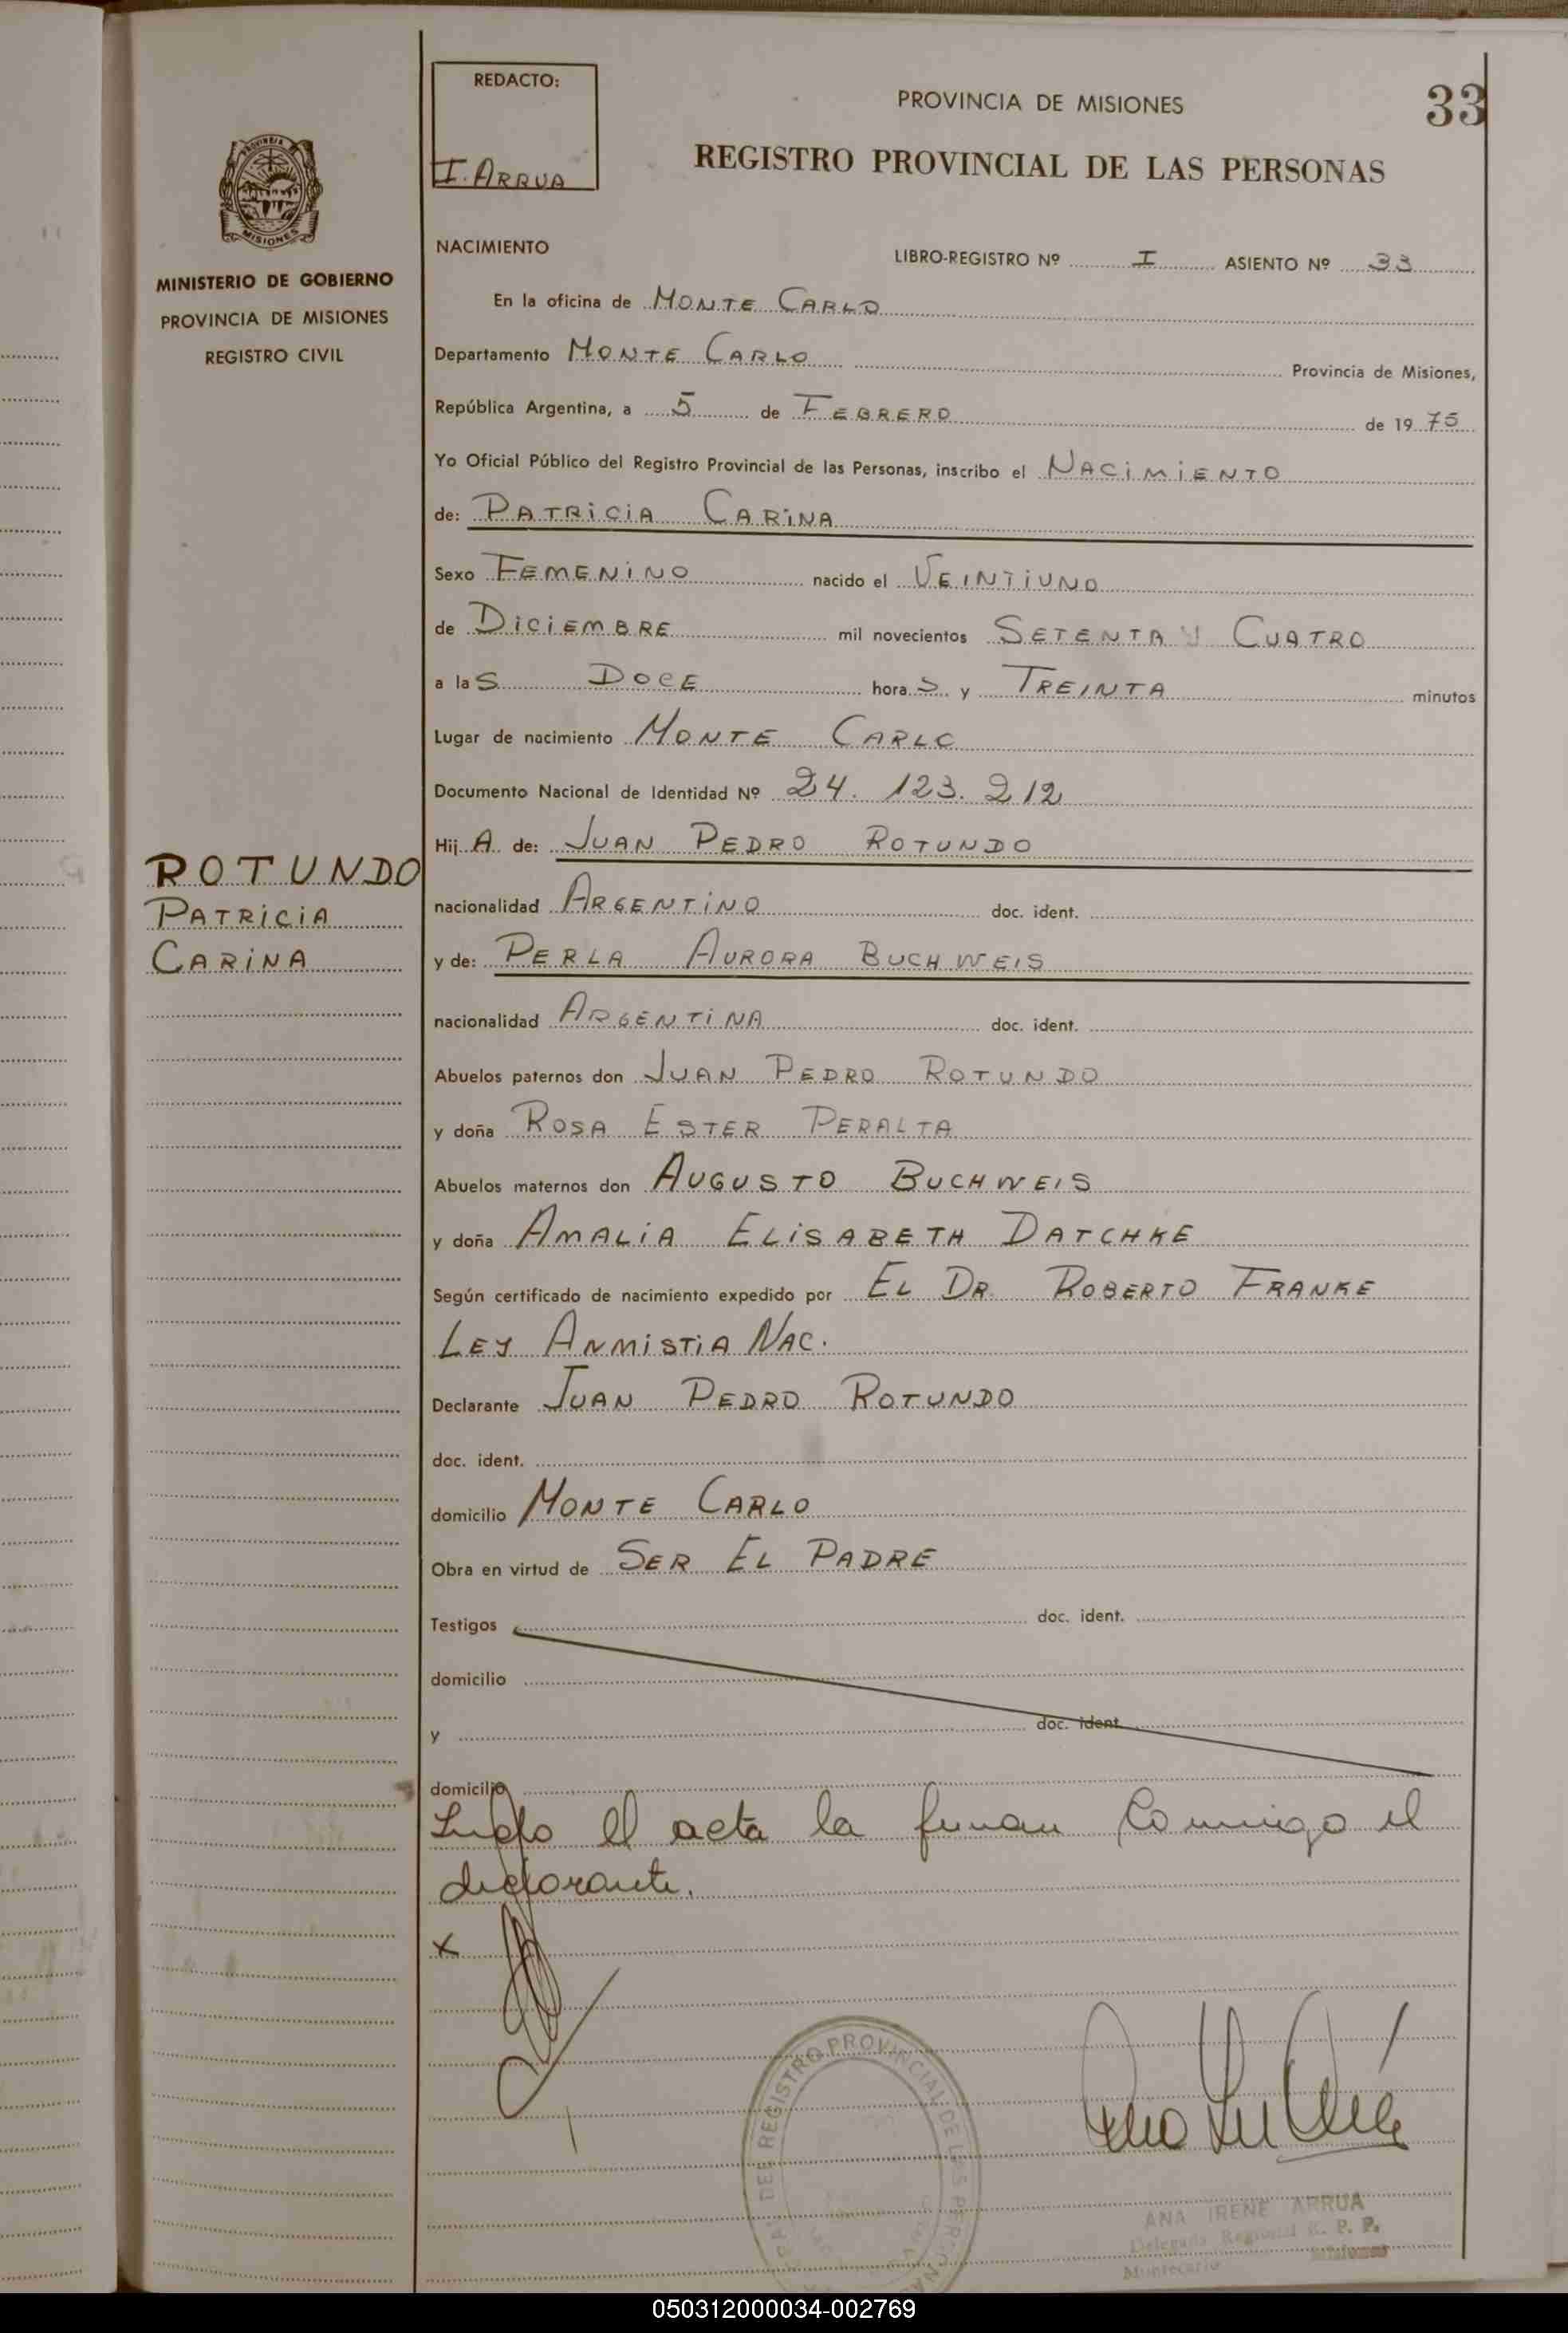 REDACTO:
I. ARRUA
PROVINCIA DE MISIONES
33
REGISTRO PROVINCIAL DE LAS PERSONAS
PROVINCIA
MISIONES
MINISTERIO DE GOBIERNO
PROVINCIA DE MISIONES
REGISTRO CIVIL
NACIMIENTO
LIBRO-REGISTRO Nº I ASIENTO Nº 33
En la oficina de MONTE CARLO
Departamento MONTE CARLO Provincia de Misiones,
República Argentina, a 5 de FEBRERO de 19 75
Yo Oficial Público del Registro Provincial de las Personas, inscribo el NACIMIENTO
de: PATRICIA CARINA
Sexo FEMENINO nacido el VEINTIUNO
de DICIEMBRE mil novecientos SETENTA Y CUATRO
a las DOCE horas y TREINTA minutos
Lugar de nacimiento MONTE CARLO
Documento Nacional de Identidad Nº 24. 123. 212
Hij A de: JUAN PEDRO ROTUNDO
ROTUNDO
PATRICIA
CARINA
nacionalidad ARGENTINO doc. ident.
y de: PERLA AURORA BUCHWEIS
nacionalidad ARGENTINA doc. ident.
Abuelos paternos don JUAN PEDRO ROTUNDO
y doña ROSA ESTER PERALTA
Abuelos maternos don AUGUSTO BUCHWEIS
y doña AMALIA ELISABETH DATCHKE
Según certificado de nacimiento expedido por EL DR. ROBERTO FRANKE
LEY ANMISTIA NAC.
Declarante JUAN PEDRO ROTUNDO
doc. ident.
domicilio MONTE CARLO
Obra en virtud de SER EL PADRE
Testigos doc. ident.
domicilio
y doc. ident.
domicilio
Leido el acta la firman conmigo el
declarante.
x
REGISTRO PROVINCIAL DE LAS PERSONAS
ANA IRENE ARRUA
Delegada Regional R. P. P.
Montecarlo Misiones
050312000034-002769